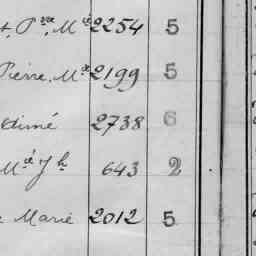 t, Pre, Me 2254 5
Pierre, Me 2199 5
Aimé 2738 6
Mé Jh 643 2
e Marie 2012 5